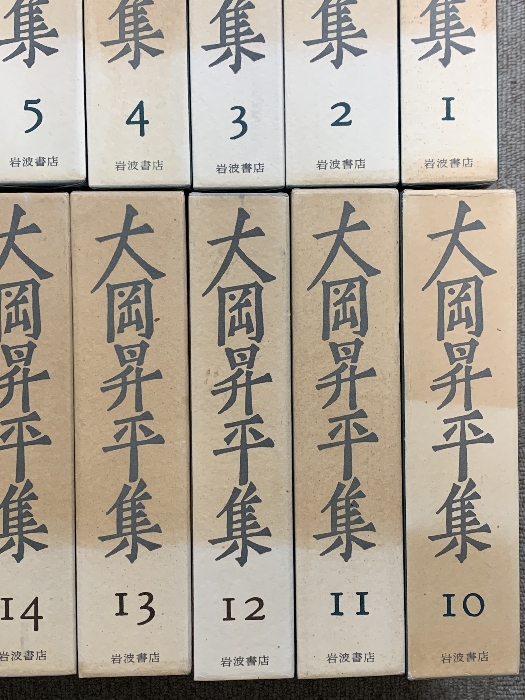 集
5
岩波書店
集
4
岩波書店
集
3
岩波書店
集
2
岩波書店
集
1
岩波書店
大岡昇平集
14
岩波書店
大岡昇平集
13
岩波書店
大岡昇平集
12
岩波書店
大岡昇平集
11
岩波書店
大岡昇平集
10
岩波書店